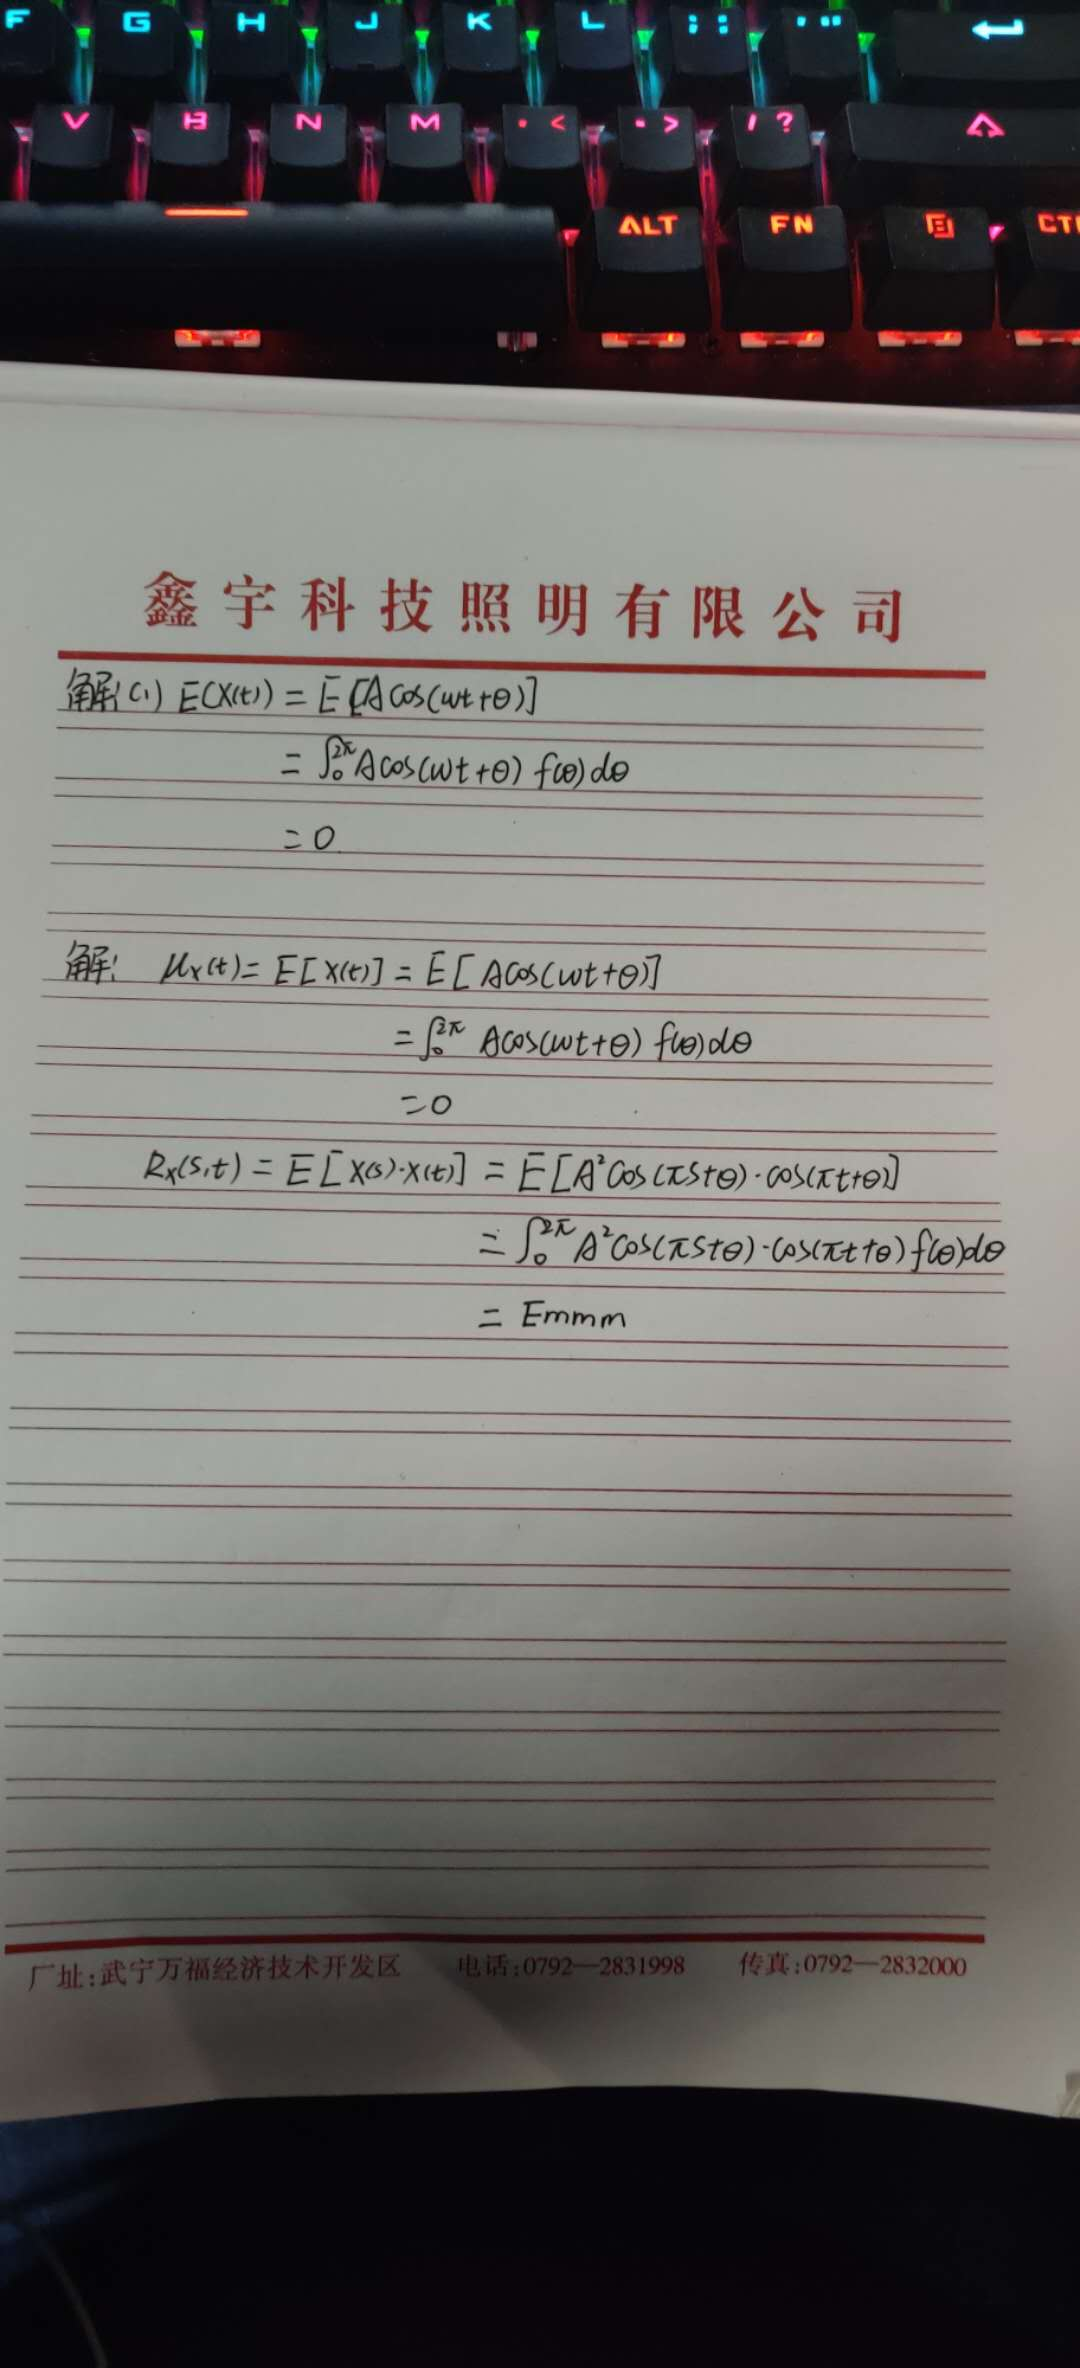 F G H J K L ; : ' "
V B N M , < . > / ?
ALT FN CT
鑫宇科技照明有限公司
解(1) E(X(t)) = E[Acos(ωt+θ)]
= ∫₀²ᷫ Acos(ωt+θ) f(θ)dθ
= 0
解: μx(t) = E[X(t)] = E[Acos(ωt+θ)]
= ∫₀^2π Acos(ωt+θ) f(θ)dθ
= 0
Rx(s,t) = E[X(s)·X(t)] = E[A²cos(πs+θ)·cos(πt+θ)]
= ∫₀^2π A²cos(πs+θ)·cos(πt+θ)f(θ)dθ
= Emmm
厂址:武宁万福经济技术开发区 电话:0792—2831998 传真:0792—2832000